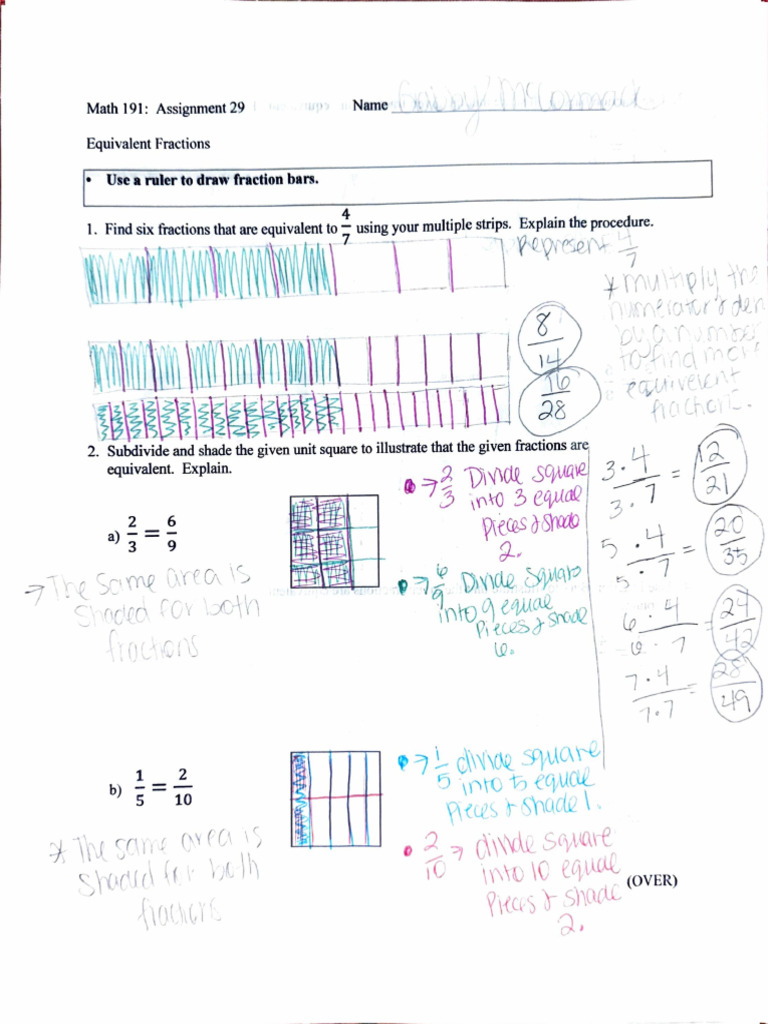 Math 191: Assignment 29
Name McCormack
Equivalent Fractions
• Use a ruler to draw fraction bars.
1. Find six fractions that are equivalent to 4/7 using your multiple strips. Explain the procedure.
Represent 4/7
* multiply the
numerator & den
by a number
to find more
equivelent
fractions.
8/14
16/28
3·4/3·7 = 12/21
5·4/5·7 = 20/35
6·4/6·7 = 24/42
7·4/7·7 = 28/49
2. Subdivide and shade the given unit square to illustrate that the given fractions are
equivalent. Explain.
a) 2/3 = 6/9
→ The same area is
shaded for both
fractions
• → 2/3 Divide square
into 3 equal
pieces & shade
2.
• → 6/9 Divide square
into 9 equal
pieces & shade
6.
b) 1/5 = 2/10
* The same area is
shaded for both
fractions
• → 1/5 divide square
into 5 equal
pieces & shade 1.
• 2/10 → divide square
into 10 equal
pieces & shade
2.
(OVER)